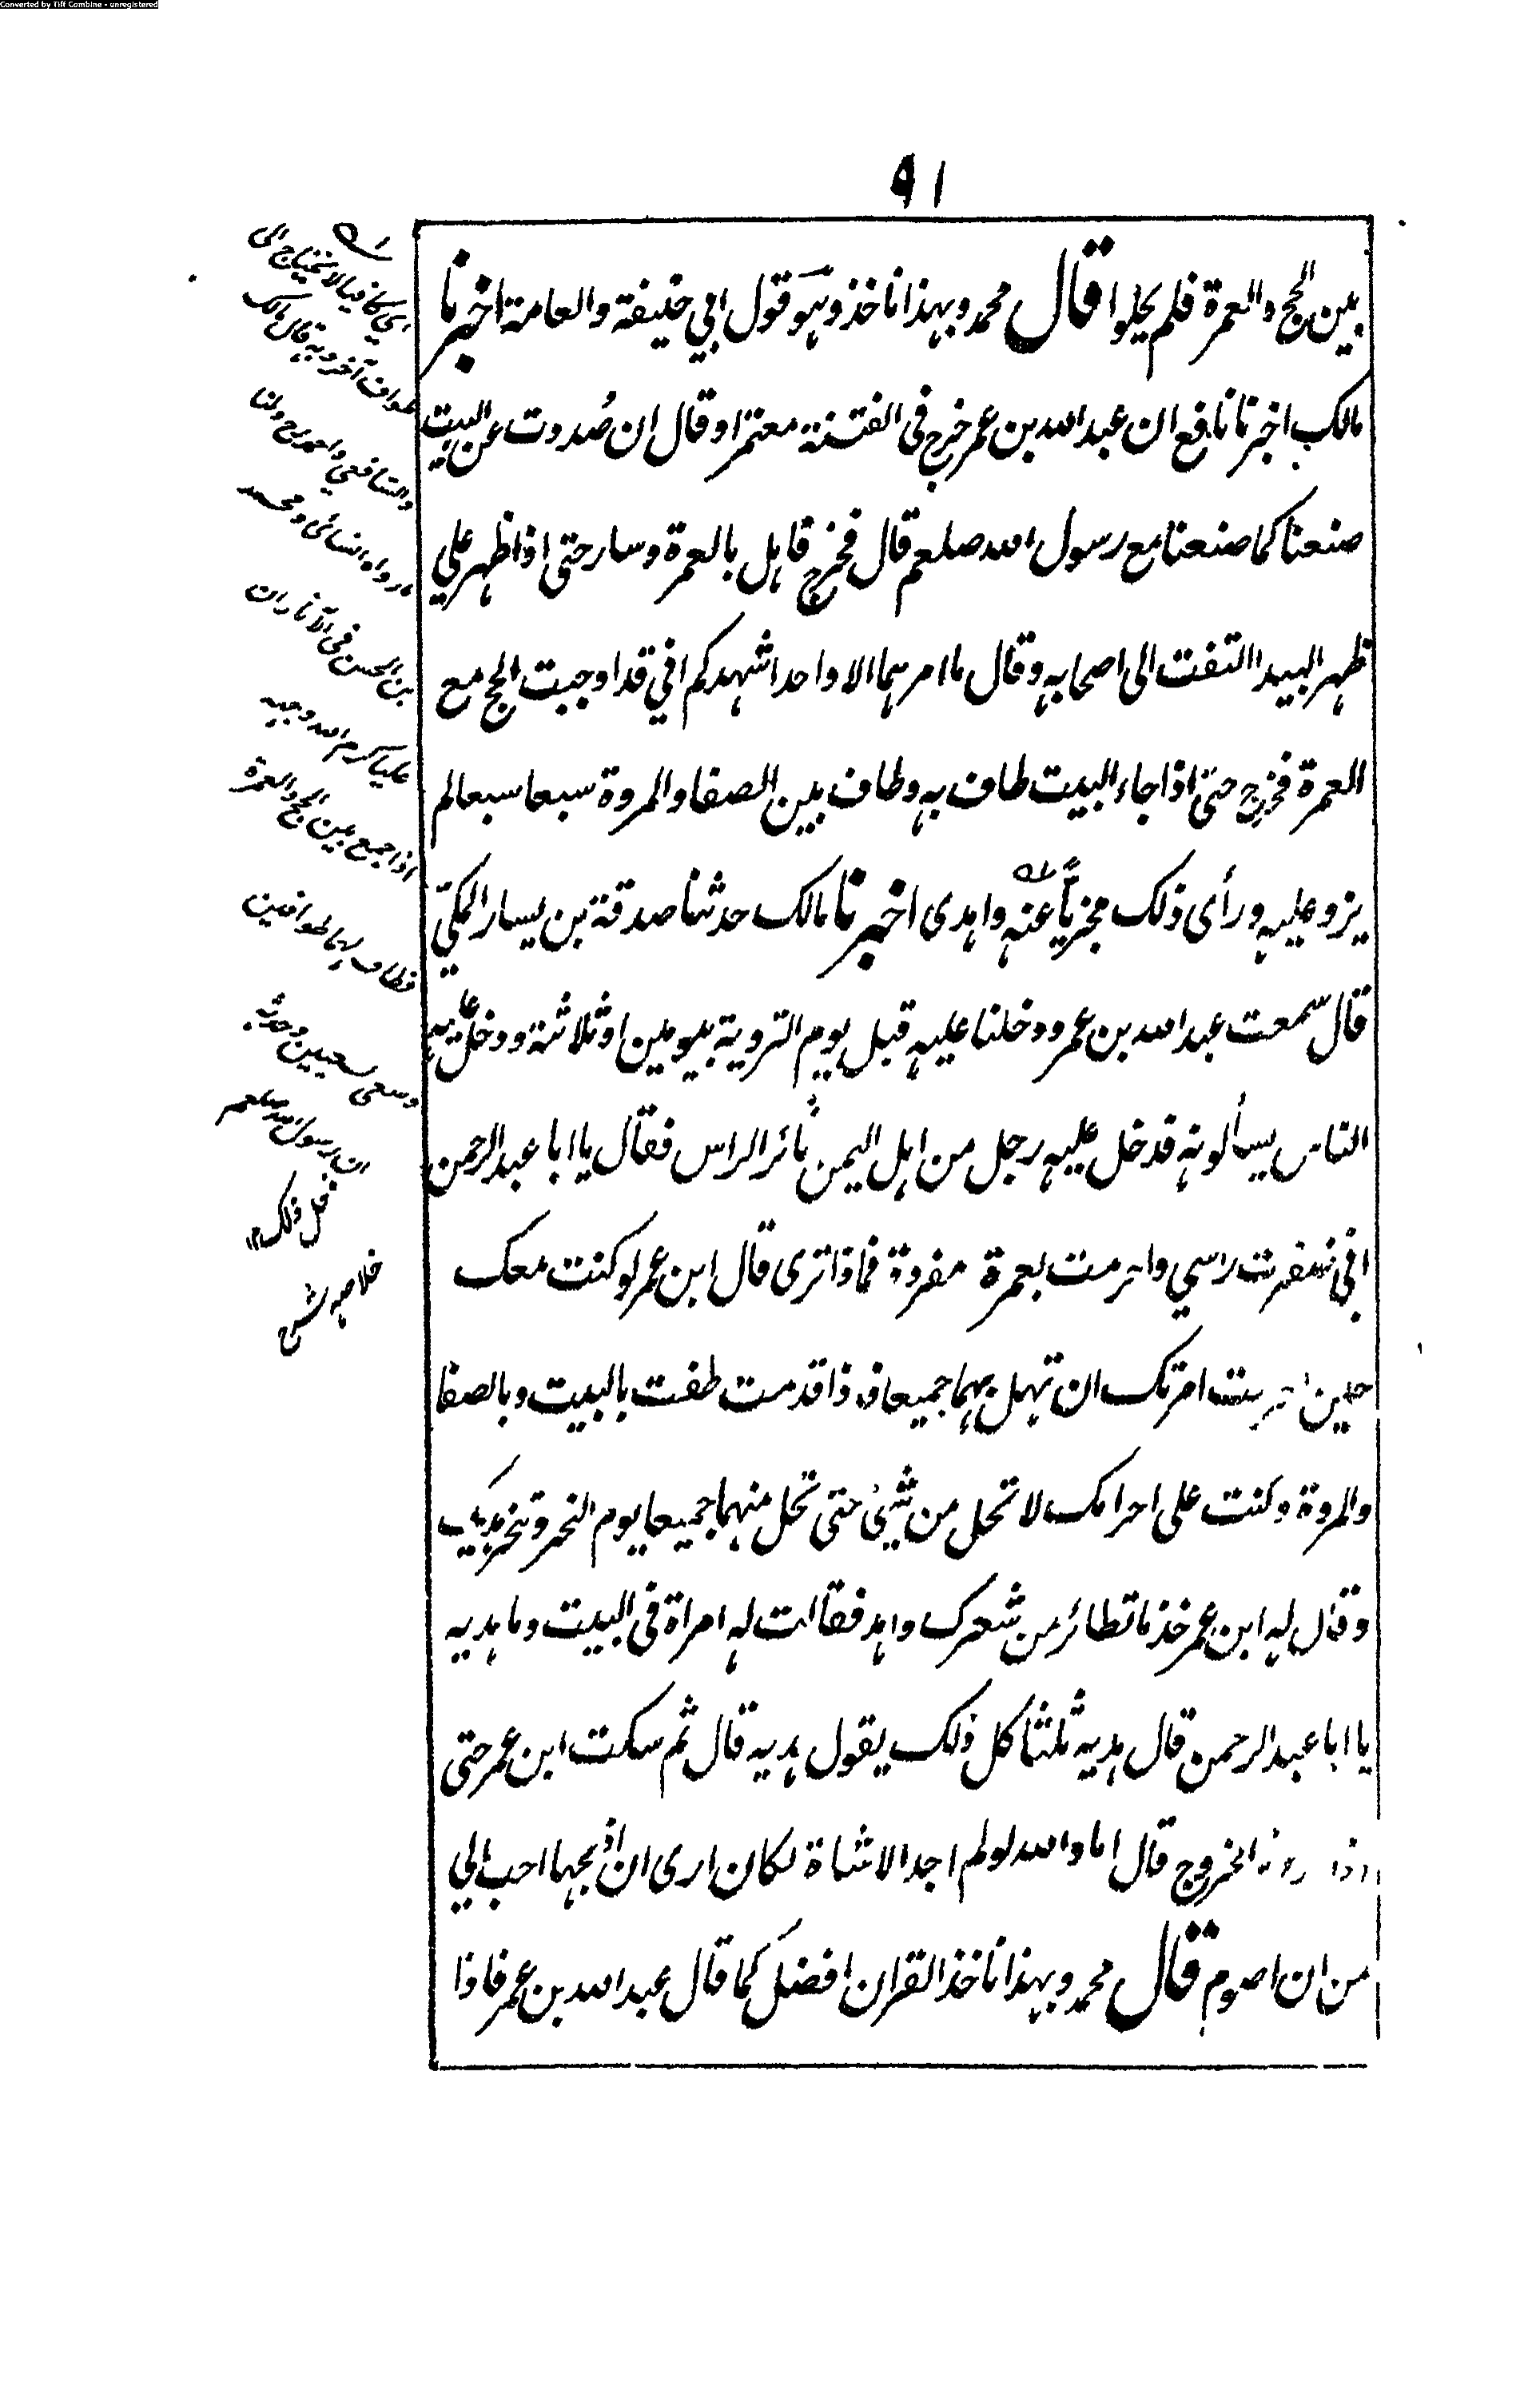 Converted by Tiff Combine - unregistered
٩١
بين الحج والعمرة فلم يحلوا قال محمد وبهذا ناخذ وهو قول ابي حنيفة والعامة اخبرنا
مالك اخبرنا نافع ان عبد الله بن عمر خرج فى الفتنة معتمرا وقال ان صُددت عن البيت
صنعنا كما صنعنا مع رسول الله صلعم قال فخرج فاهل بالعمرة وسار حتى اذا ظهر علي
ظهر البيدا التفت الى اصحابه وقال ما امرهما الا واحد اشهدكم اني قد اوجبت الحج مع
العمرة فخرج حتى اذا جاء البيت طاف به وطاف بين الصفا والمروة سبعا سبعا لم
يزد عليه ورأى ذلك مجزيًا عنه واهدى اخبرنا مالك حدثنا صدقة بن يسار المكيّ
قال سمعت عبد الله بن عمر ودخلنا عليه قبل يوم التروية بيومين او ثلاثة ودخل عليه
الناس يسألونه فدخل عليه رجل من اهل اليمن ثائر الراس فقال يا ابا عبد الرحمن
اني ضفرت راسي واحرمت بعمرة مفردة فماذا ترى قال ابن عمر لو كنت معك
حين احرمت امرتك ان تهل بهما جميعا فاذا قدمت طفت بالبيت وبالصفا
والمروة وكنت على احرامك لا تحل من شئ حتى تحل منهما جميعا يوم النحر وتنحر هديك
وقال له ابن عمر خذ ما تطائر من شعرك واهد فقالت له امراة فى البيت وما هديه
يا ابا عبد الرحمن قال هديه ثلثا كل ذلك يقول هديه قال ثم سكت ابن عمر حتى
اذا اردنا الخروج قال اما والله لو لم اجد الا شاة لكان ارى ان اذبحها احب الي
من ان اصوم قال محمد وبهذا ناخذ القران افضل كما قال عبد الله بن عمر فاذا
اى كافيا لا يحتاج الى
طواف آخر وبه قال مالك
والشافعي واحمد رح ولنا
ما رواه النسائى ومحمد
بن الحسن فى الآثار ان
عليا كرم الله وجهه
اذا جمع بين الحج والعمرة
فطاف لهما طوافين
وسعى سعيين وحدث
ان رسول الله صلعم
فعل ذلك